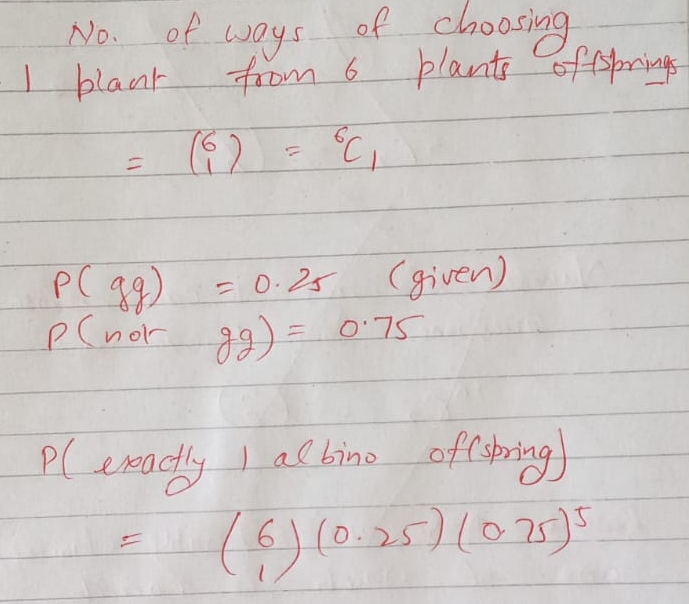 No. of ways of choosing
1 plant from 6 plants offsprings
= (6 1) = ⁶C₁
P(gg) = 0.25 (given)
P(not gg) = 0.75
P(exactly 1 albino offspring)
= (6 1)(0.25)(0.75)⁵